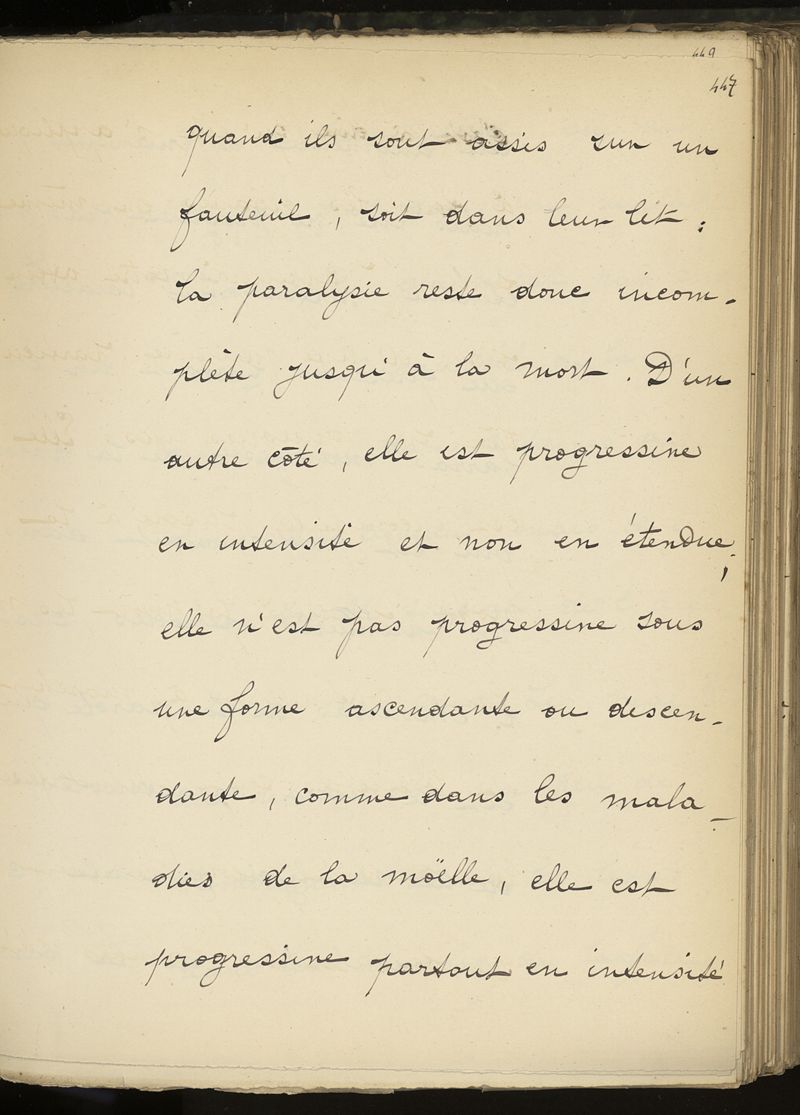 449
447
quand ils sont assis sur un
fauteuil, soit dans leur lit ;
la paralysie reste donc incom-
plète jusqu'à la mort. D'un
autre côté, elle est progressive
en intensité et non en étendue ;
elle n'est pas progressive sous
une forme ascendante ou descen-
dante, comme dans les mala-
dies de la moëlle, elle est
progressive partout en intensité